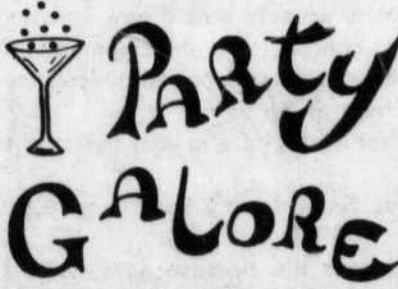 PARty
GALORE